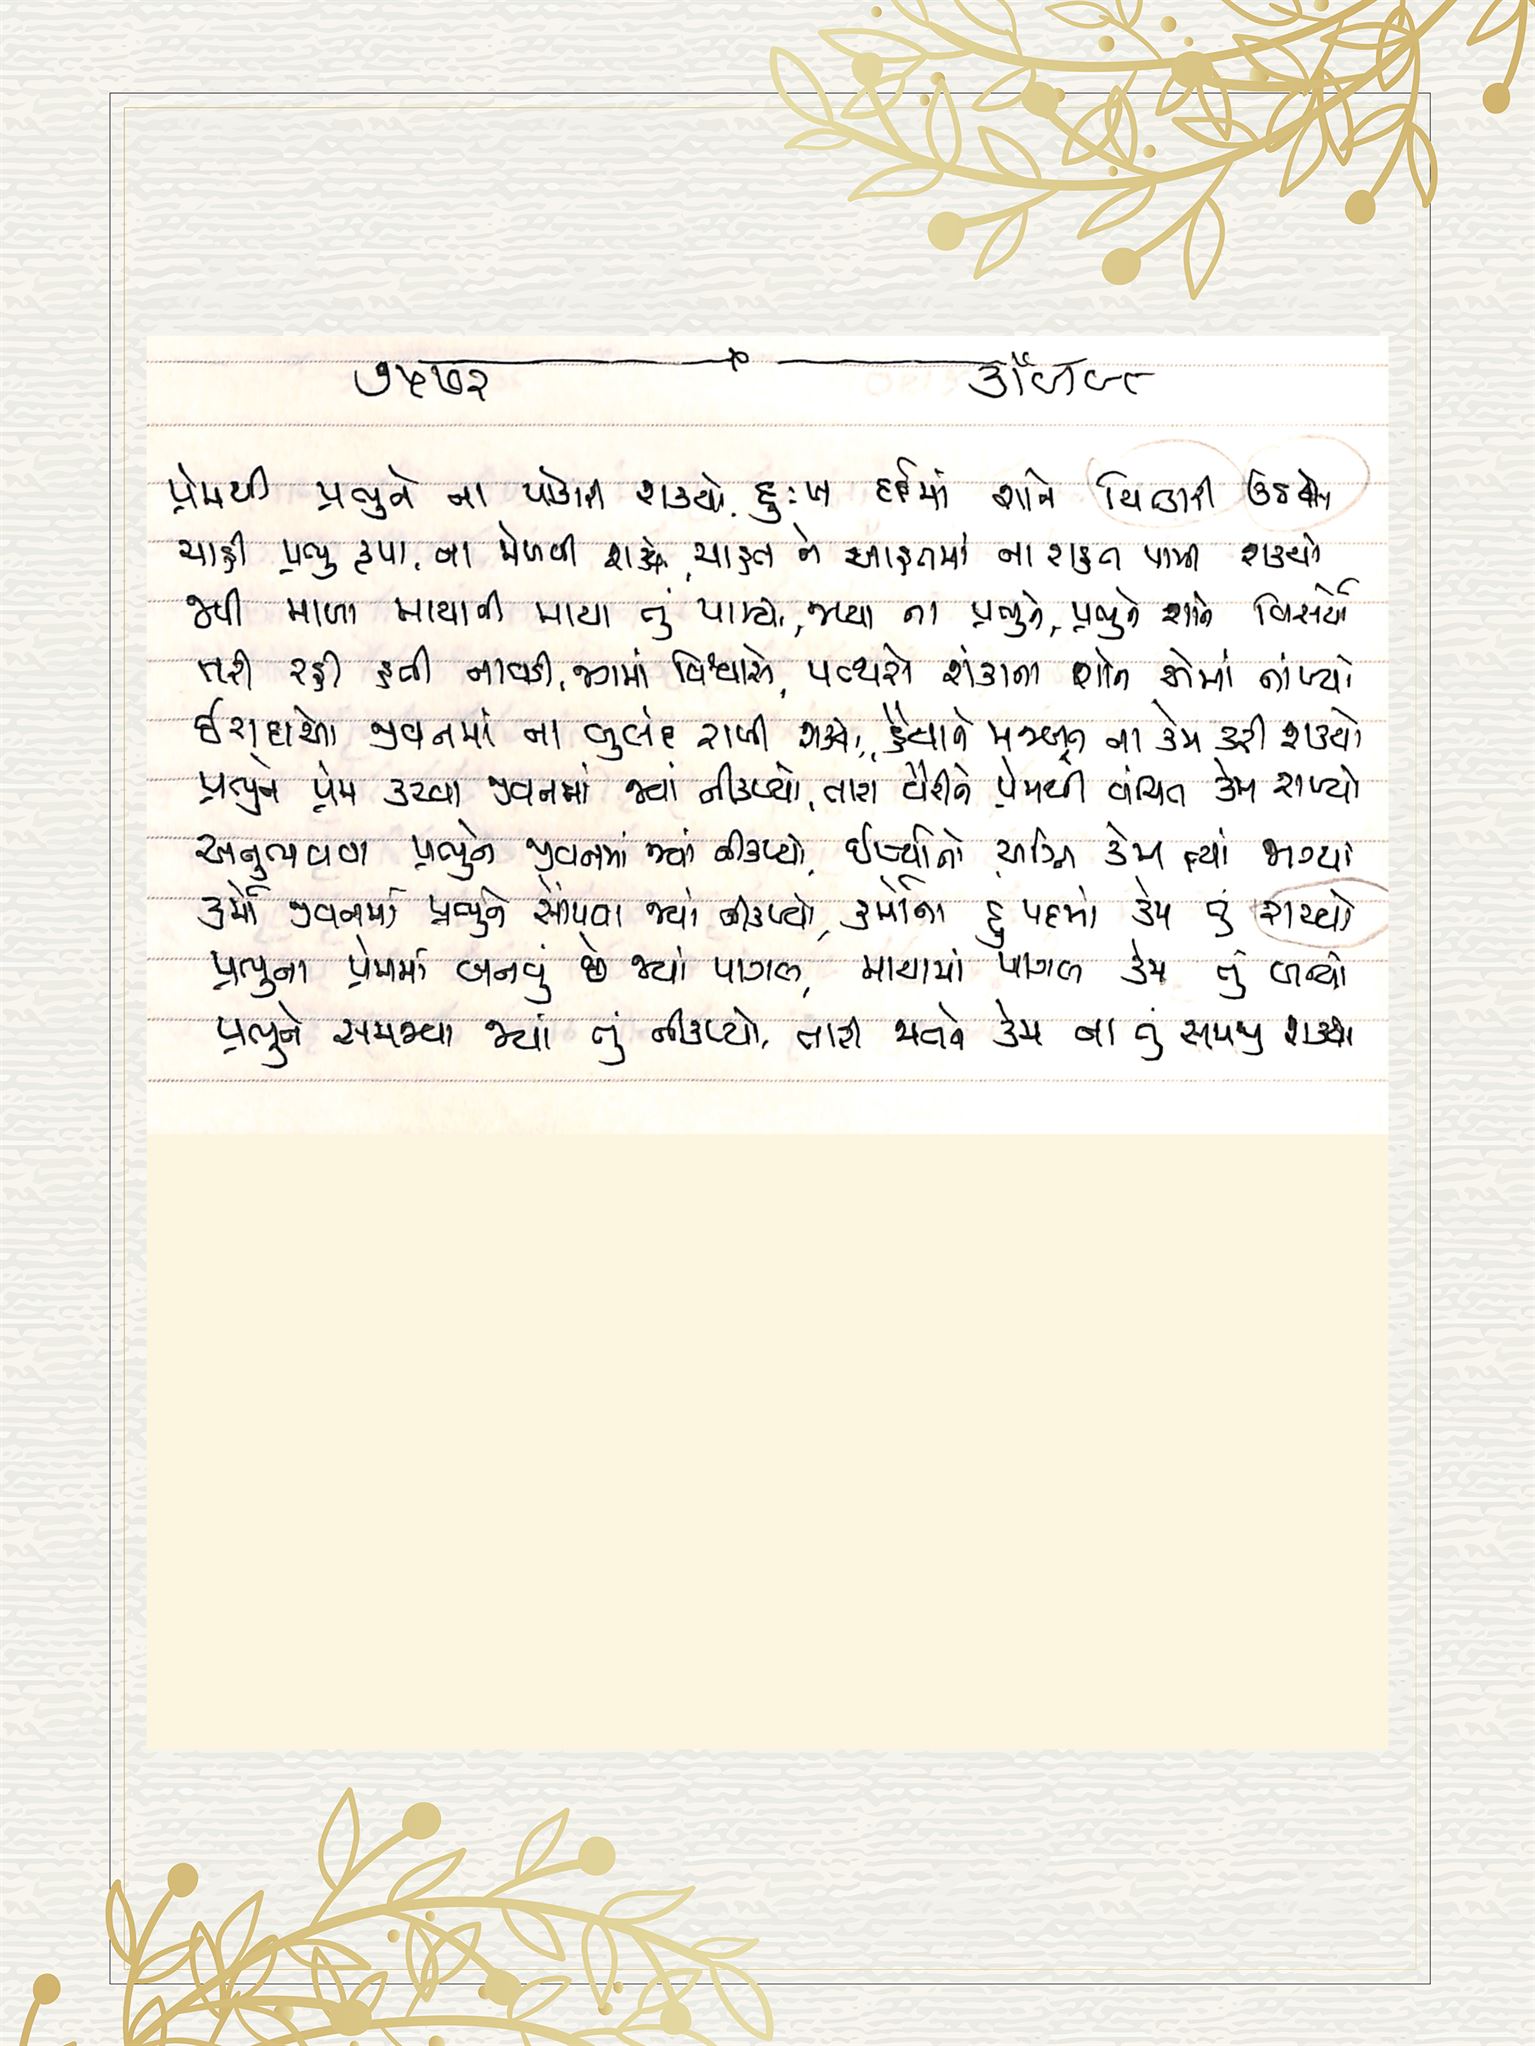 ૭૫૭૨
પ્રેમથી પ્રભુને ના પોકારી શક્યો. દુઃખ દર્દમાં શાને ચિત્કારી ઉઠ્યો
ચાહી પ્રભુ કૃપા, ના મેળવી શક્યો, ચાહત ને આફતમાં ના રાહત પામી શક્યો
જપી માળા માયાની માયા તું પામ્યો, જપ્યા ના પ્રભુને, પ્રભુને શાને વિસર્યો
તરી રહી હતી નાવડી, જગમાં વિશ્વાસે, પથ્થરો શંકાના શાને એમાં નાંખ્યો
ઈરાદાઓ જીવનમાં ના બુલંદ રાખી શક્યો, હૈયાને મજબૂત ના કેમ કરી શક્યો
પ્રભુને પ્રેમ કરવા જીવનમાં જ્યાં નીકળ્યો, તારા વૈરીને પ્રેમથી વંચિત કેમ રાખ્યો
અનુભવવા પ્રભુને જીવનમાં જ્યાં નીકળ્યો, ઈર્ષ્યાનો અગ્નિ કેમ ત્યાં જાગ્યો
કર્મો જીવનમાં પ્રભુને સોંપવા જ્યાં નીકળ્યો, કર્મોના કેમ તું રાચ્યો
પ્રભુના પ્રેમમાં બનવું છે જ્યાં પાગલ, માયામાં પાગલ કેમ તું બન્યો
પ્રભુને સમજવા જ્યાં તું નીકળ્યો, તારી મનને કેમ ના તું સમજી શક્યો